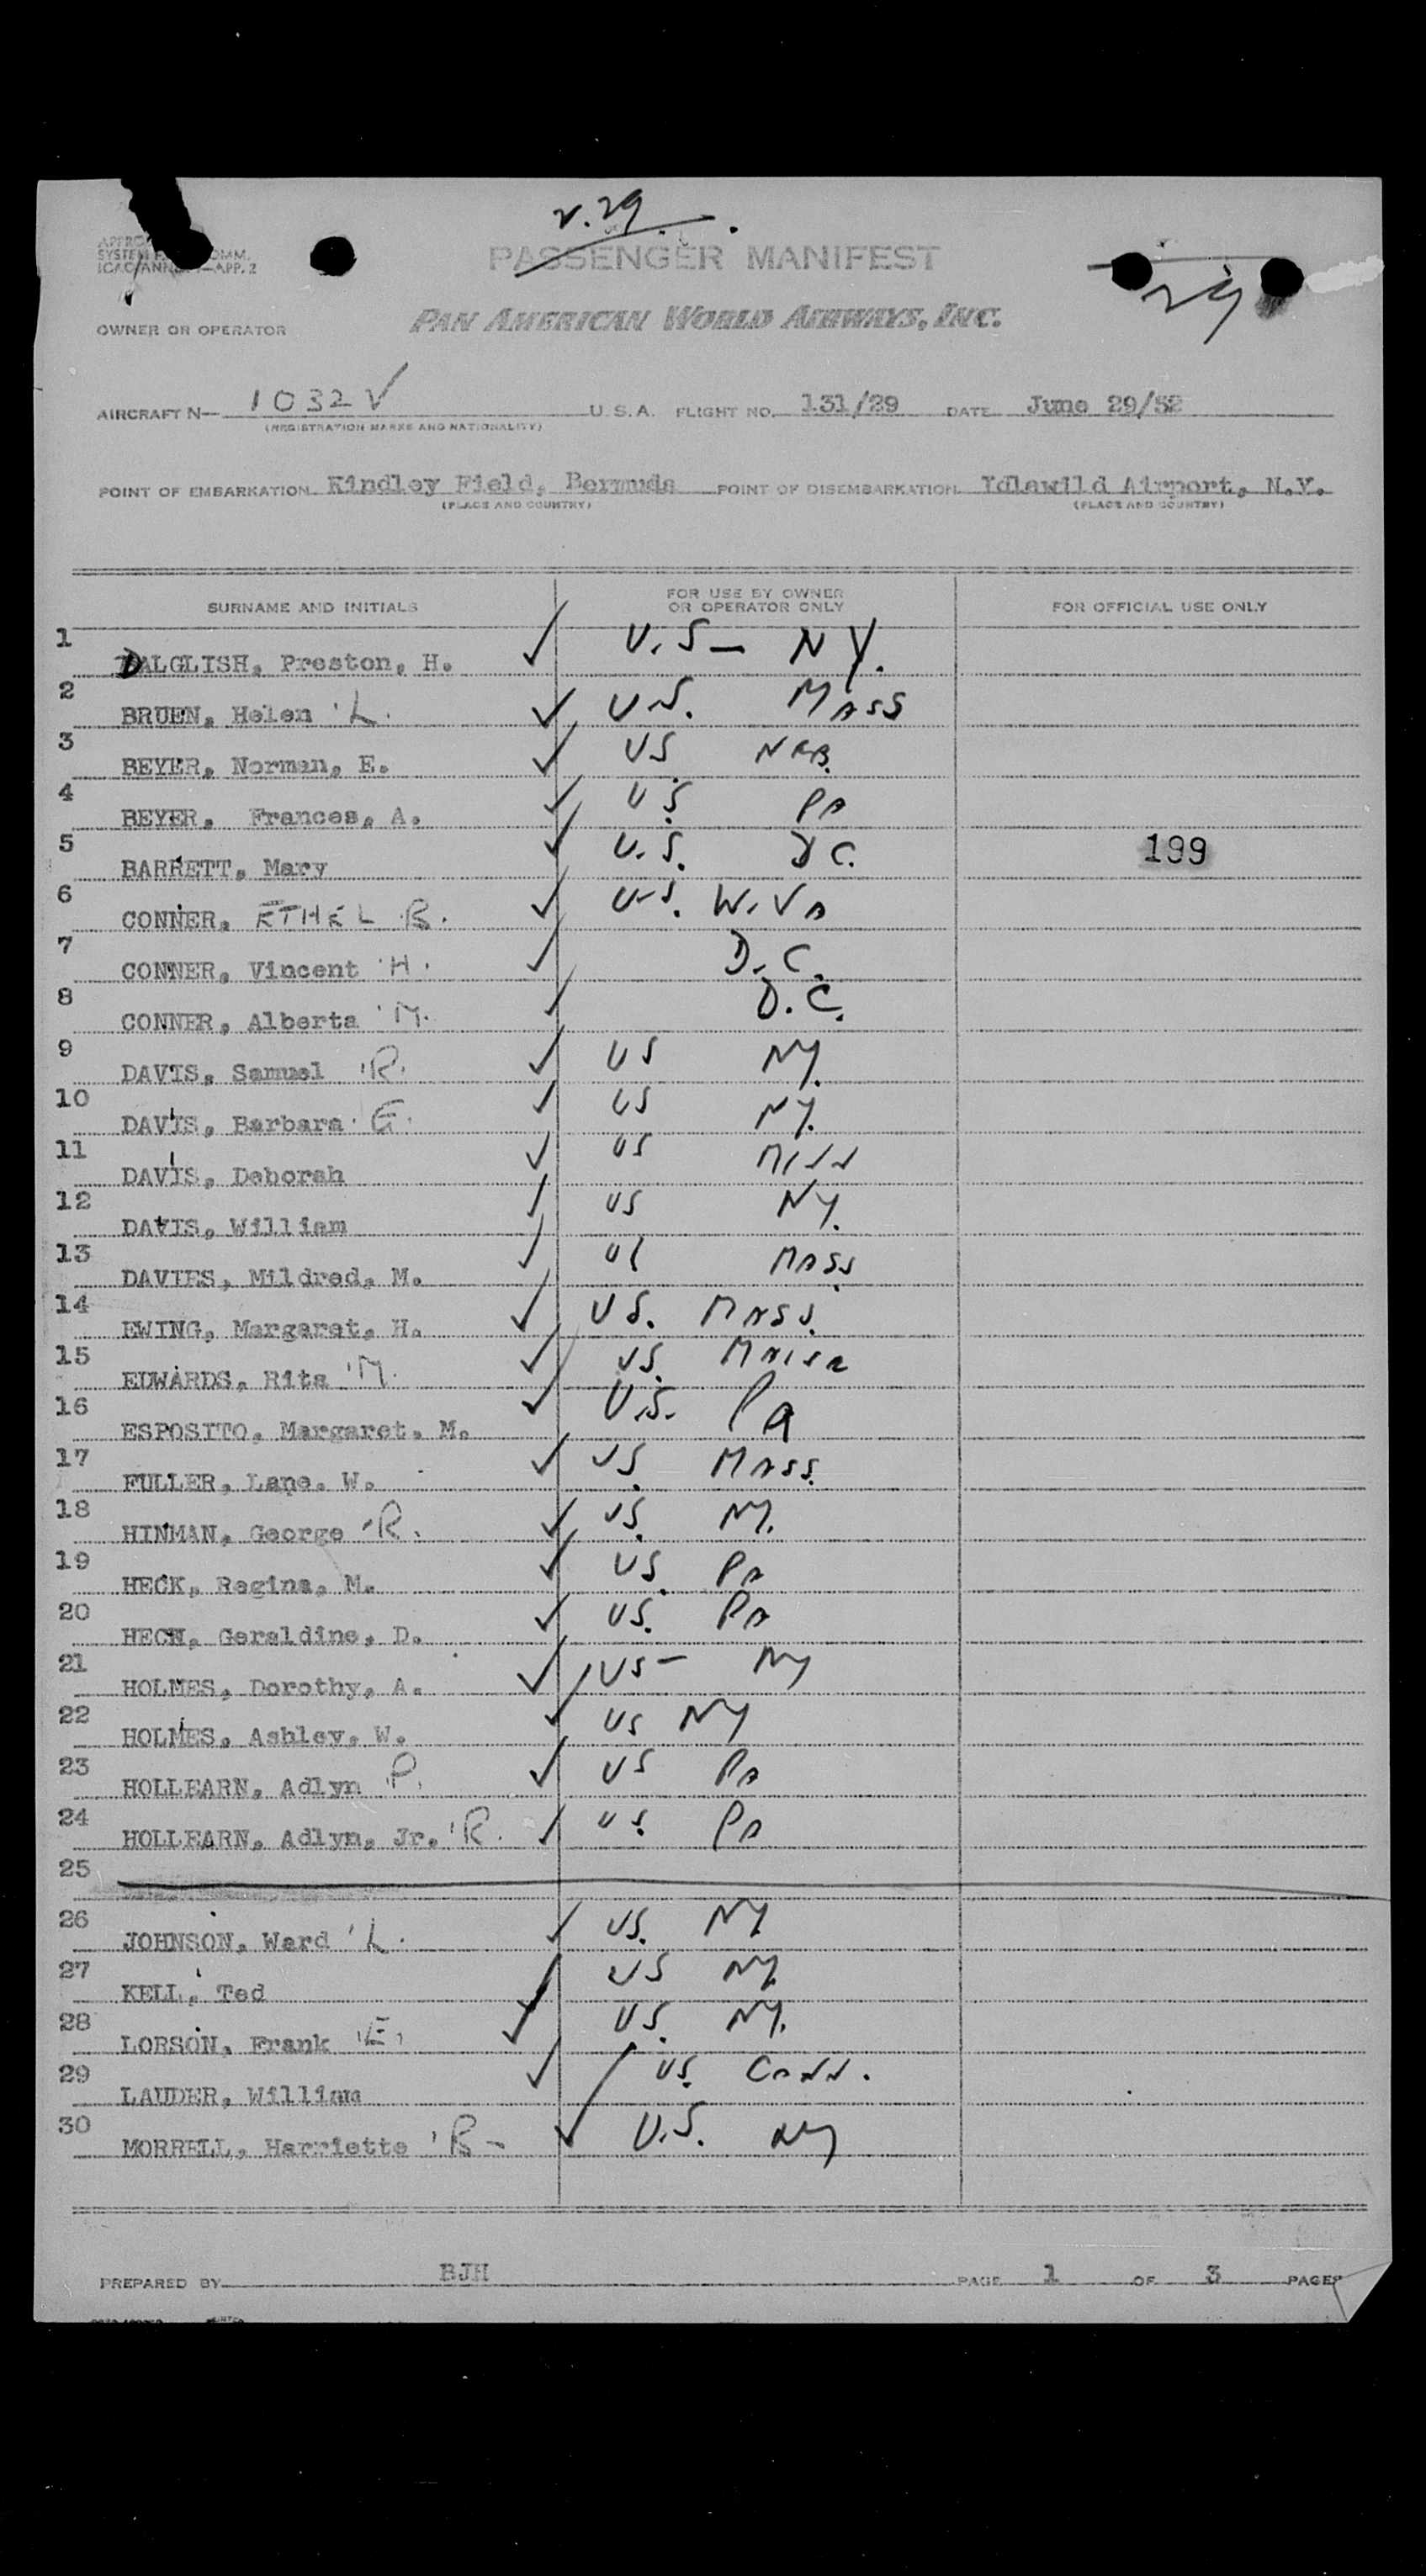 v. 29
PASSENGER MANIFEST
29
SYSTEM COMM.
ICAO/ANNEX —APP. 2
OWNER OR OPERATOR PAN AMERICAN WORLD AIRWAYS, INC.
AIRCRAFT N— 1032V U. S. A. FLIGHT NO. 131/29 DATE June 29/52
(REGISTRATION MARKS AND NATIONALITY)
POINT OF EMBARKATION Kindley Field, Bermuda POINT OF DISEMBARKATION Idlewild Airport, N.Y.
(PLACE AND COUNTRY) (PLACE AND COUNTRY)
SURNAME AND INITIALS FOR USE BY OWNER OR OPERATOR ONLY FOR OFFICIAL USE ONLY
1 DALGLISH, Preston, H. ✓ U.S— NY.
2 BRUEN, Helen L. ✓ U.S. MASS
3 BEYER, Norman, E. ✓ US NEB.
4 BEYER, Frances, A. ✓ US PA
5 BARRETT, Mary ✓ U.S. DC. 199
6 CONNER, ETHEL B. ✓ U.S. W.VA
7 CONNER, Vincent H. ✓ D.C.
8 CONNER, Alberta M. ✓ D.C.
9 DAVIS, Samuel R. ✓ US NY.
10 DAVIS, Barbara E. ✓ US NY.
11 DAVIS, Deborah ✓ US
12 DAVIS, William ✓ US NY.
13 DAVIES, Mildred, M. ✓ US MASS
14 EWING, Margaret, H. ✓ US. MASS.
15 EDWARDS, Rita M. ✓ US. MAINE
16 ESPOSITO, Margaret. M. ✓ U.S. Pa
17 FULLER, Lane. W. ✓ US. MASS.
18 HINMAN, George R. ✓ US. NY.
19 HECK, Regina, M. ✓ US. PA
20 HECK, Geraldine, D. ✓ US. PA
21 HOLMES, Dorothy, A. ✓ US— NY
22 HOLMES, Ashley, W. ✓ US NY
23 HOLLEARN, Adlyn P. ✓ US PA
24 HOLLEARN, Adlyn, Jr. R. ✓ US. PA
25
26 JOHNSON, Ward L. ✓ US. NY
27 KELL, Ted ✓ US NY.
28 LORSON, Frank E. ✓ US. NY.
29 LAUDER, William ✓ US. CONN.
30 MORRELL, Harriette B— ✓ U.S. NY
PREPARED BY BJH PAGE 1 OF 3 PAGES